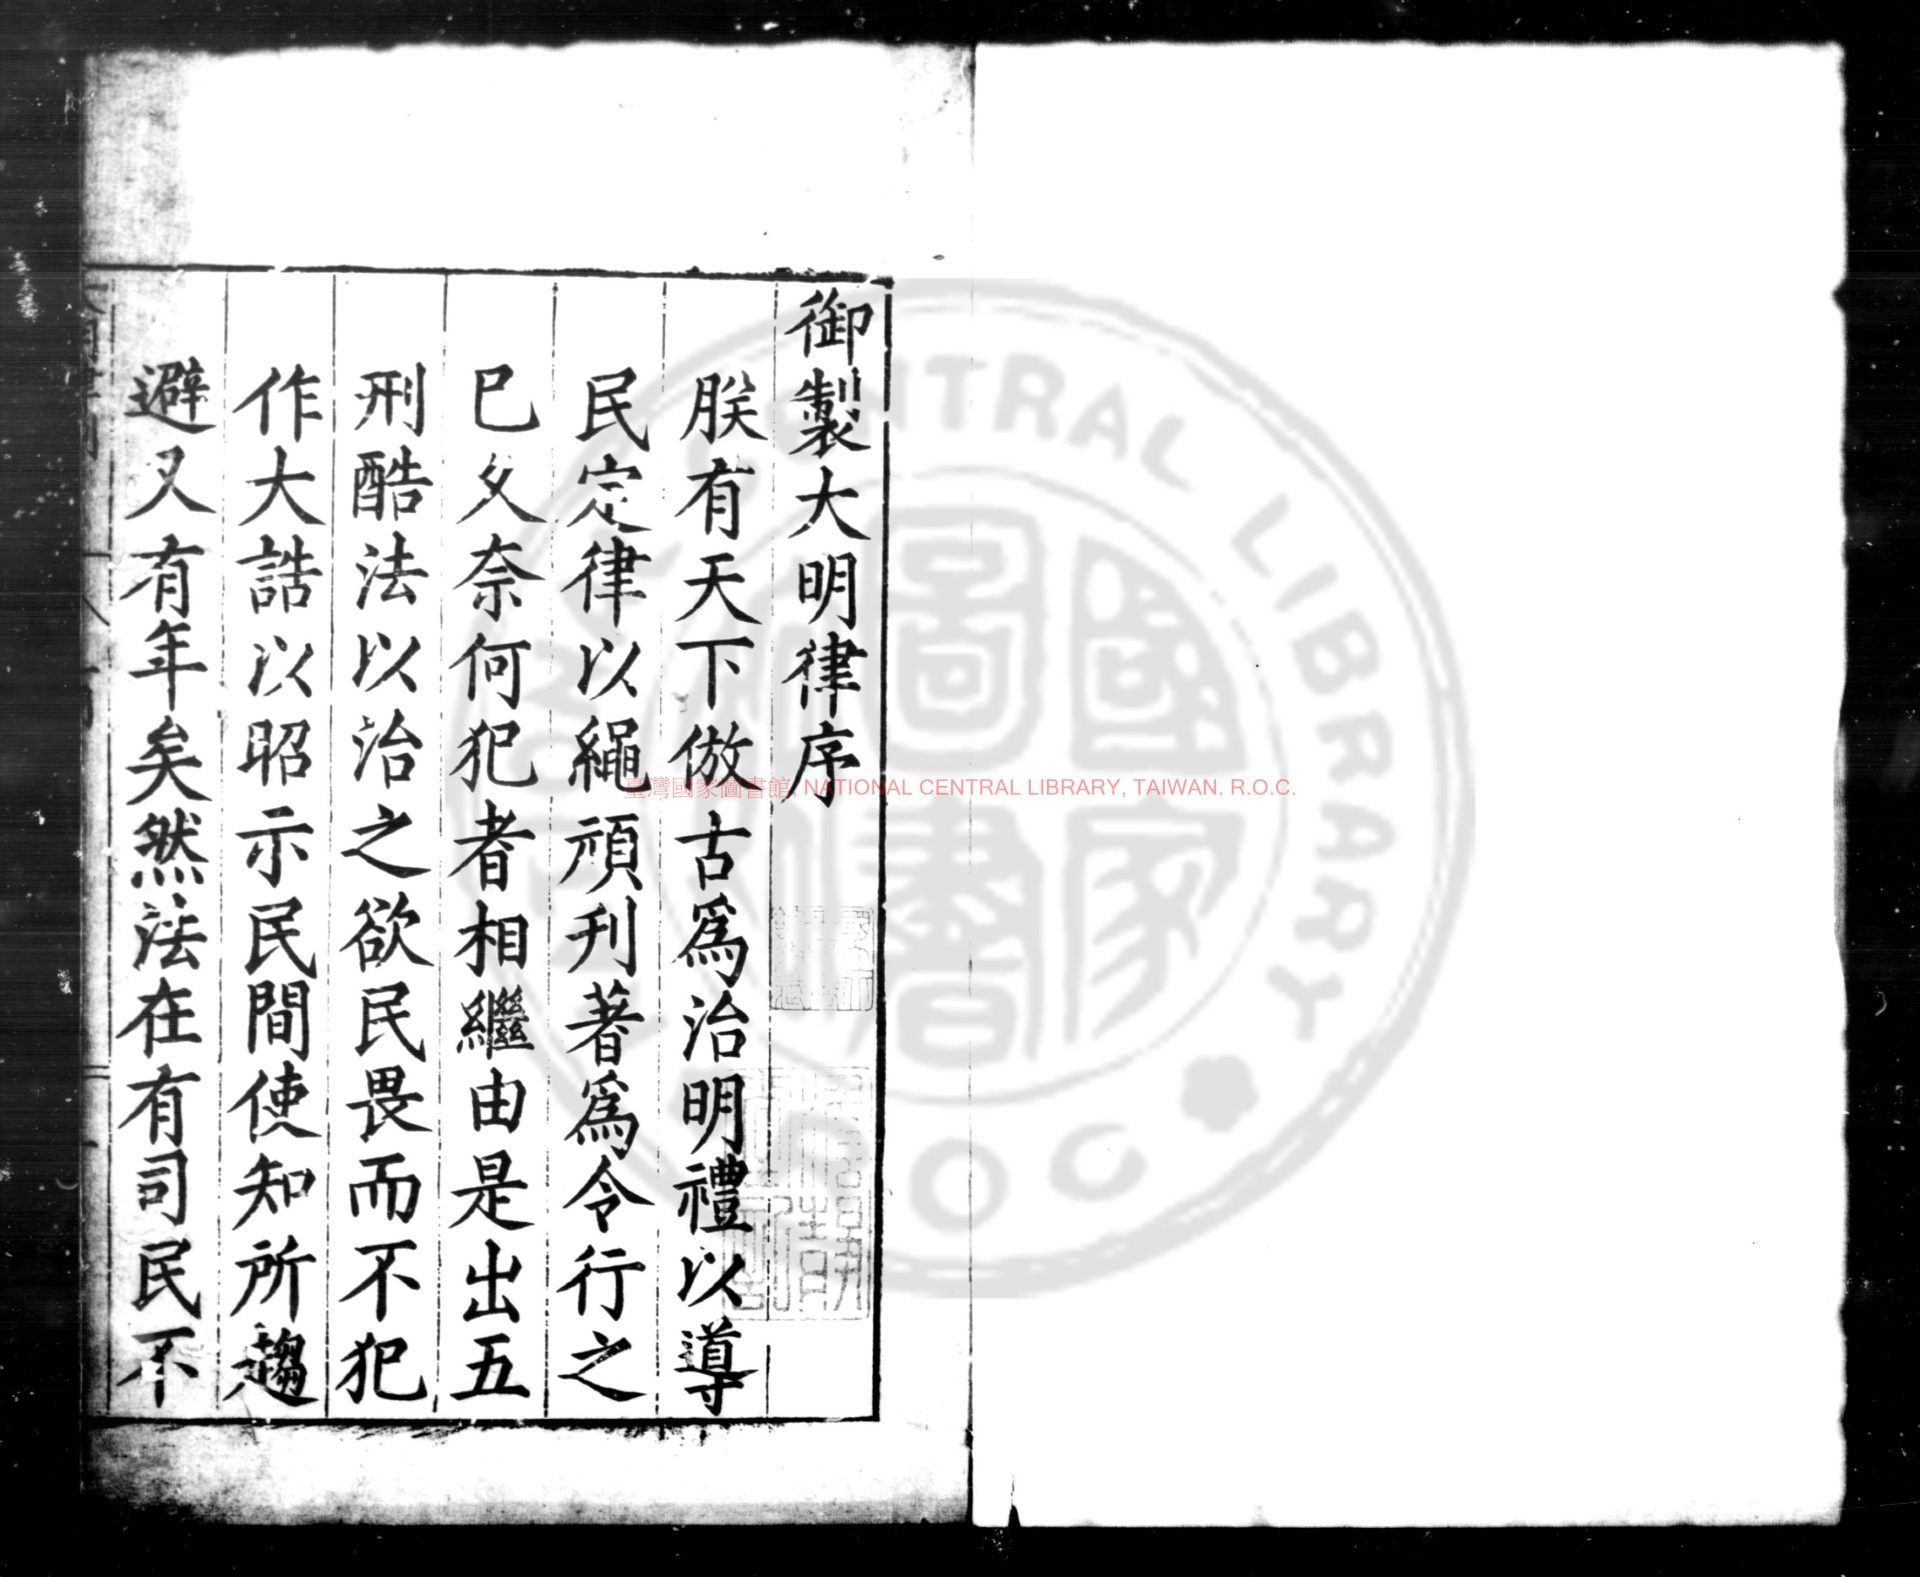 御製大明律序
朕有天下倣古爲治明禮以導
民定律以繩頑刋著爲令行之
已久奈何犯者相繼由是出五
刑酷法以治之欲民畏而不犯
作大誥以昭示民間使知所趨
避又有年矣然法在有司民不
臺灣國家圖書館, NATIONAL CENTRAL LIBRARY, TAIWAN. R.O.C.
國家圖書館
CENTRAL LIBRARY